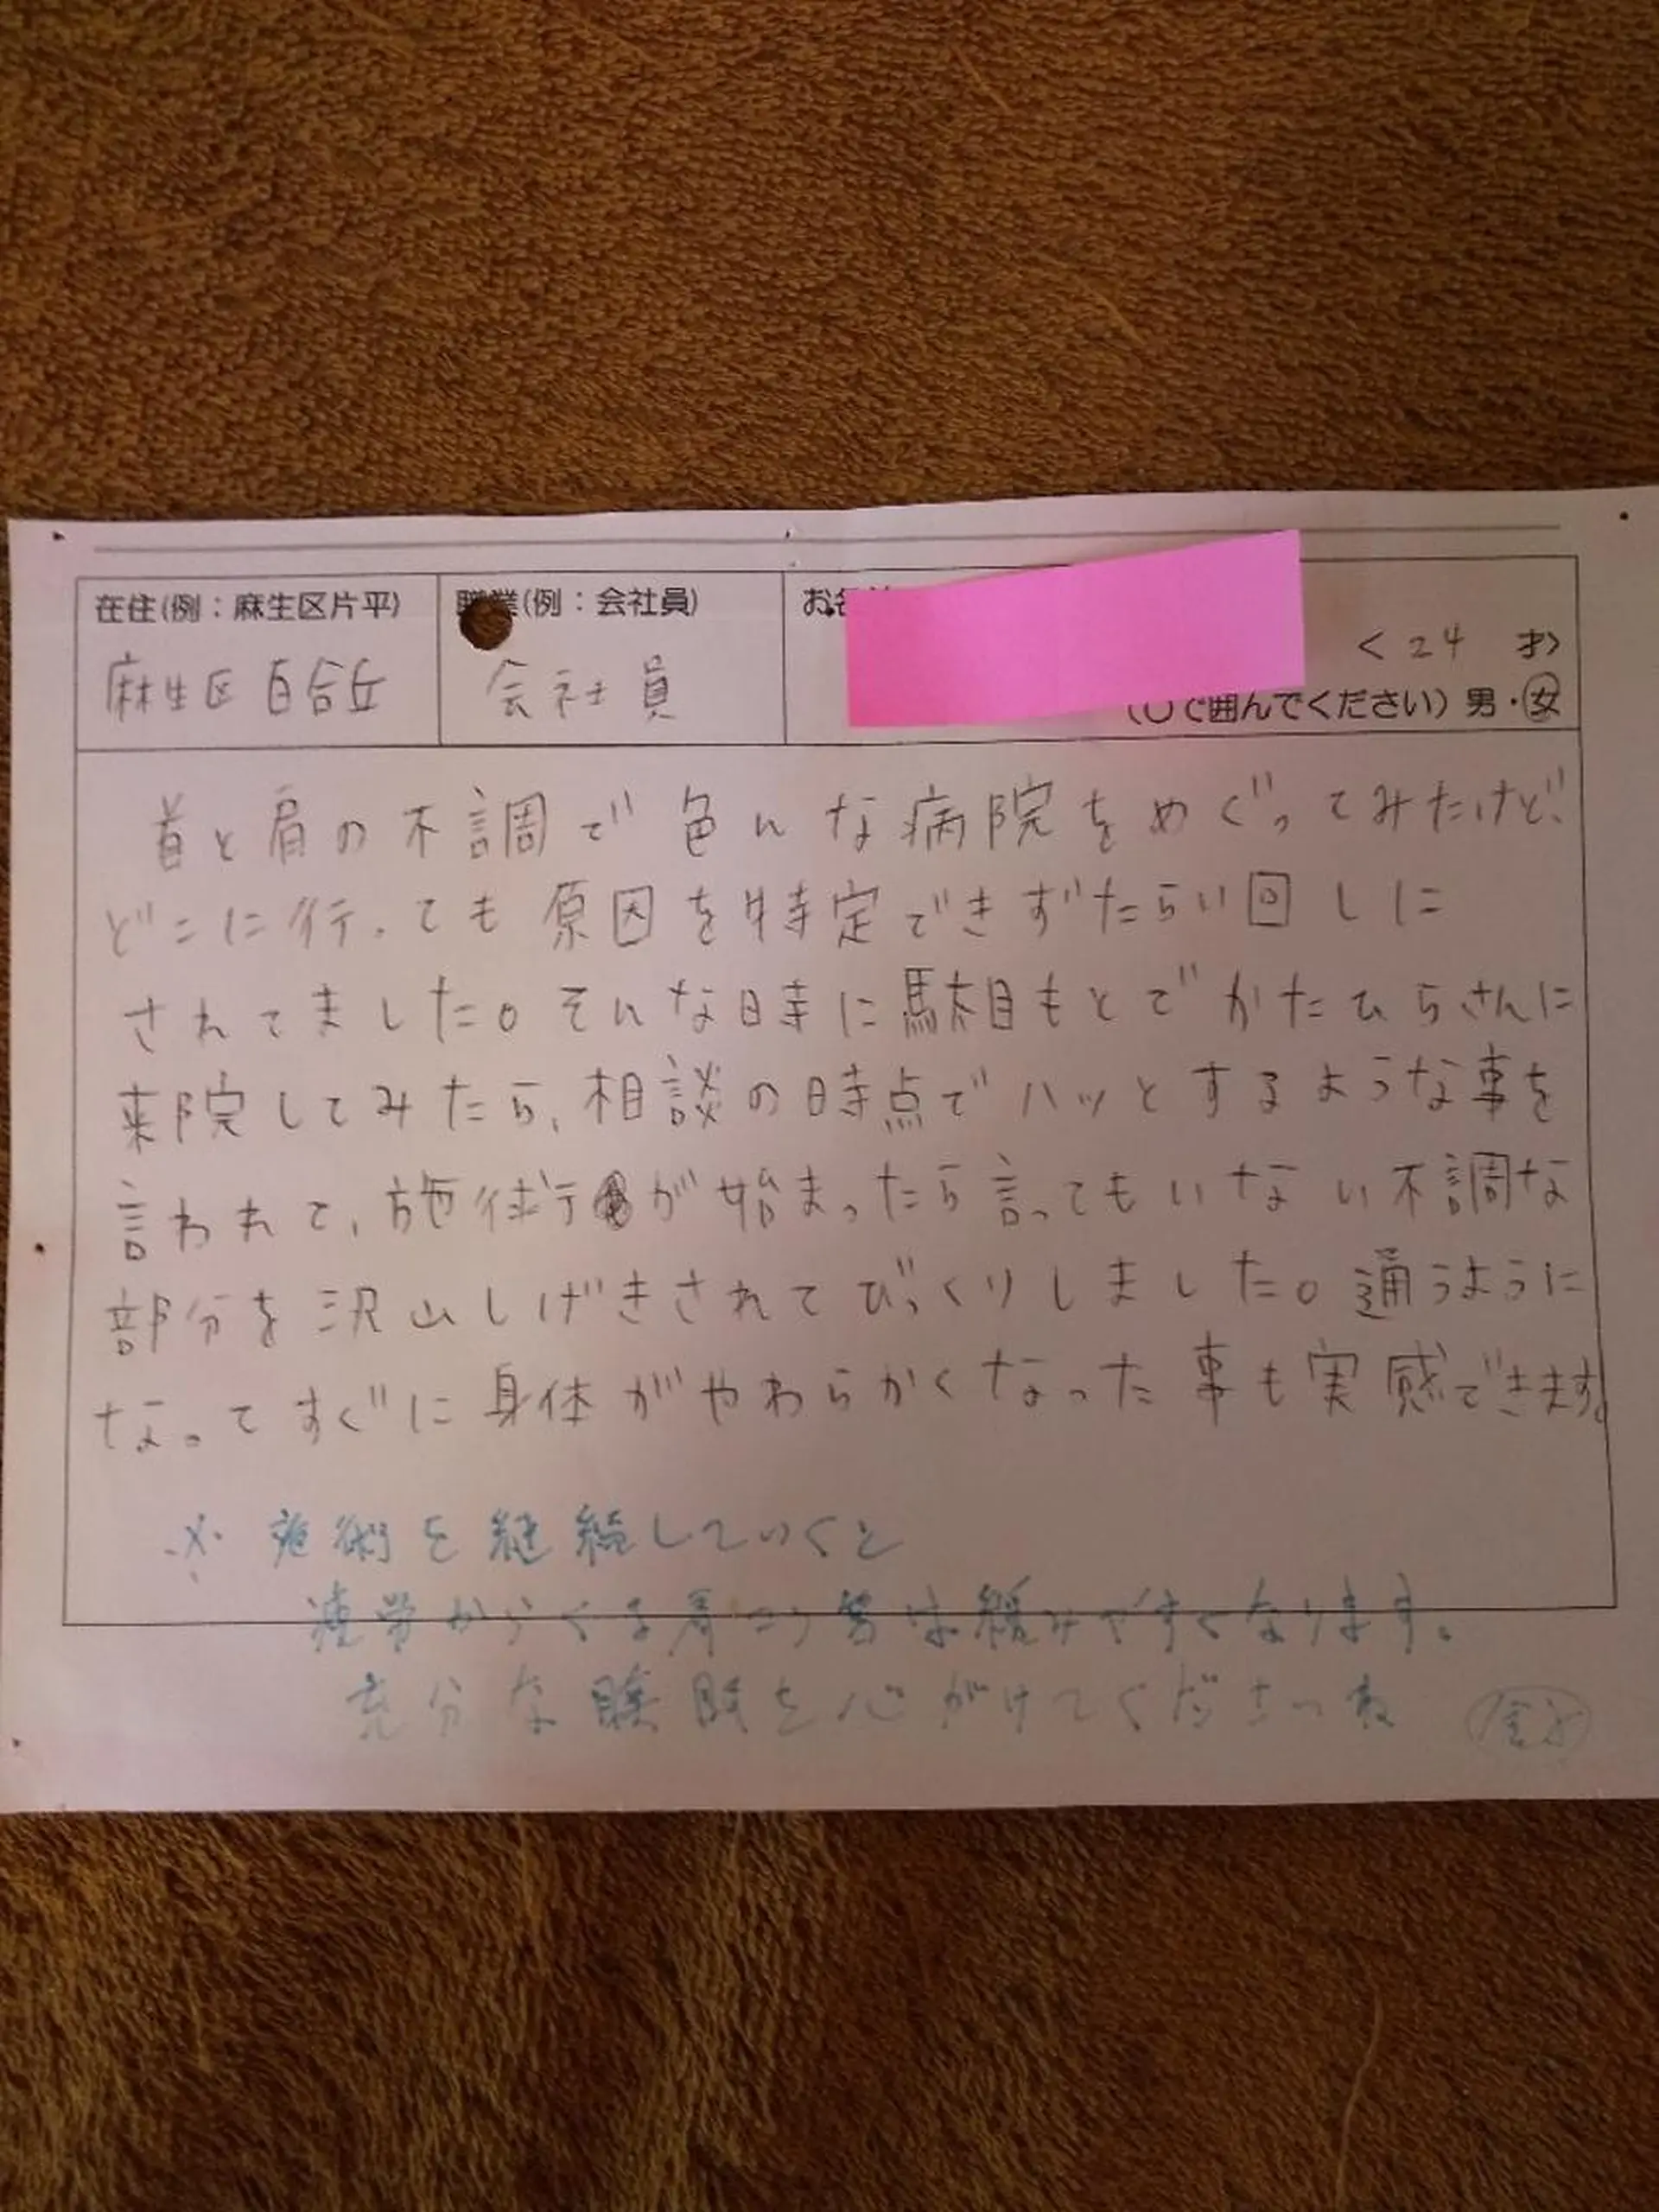 在住(例：麻生区片平)
職業(例：会社員)
お名
麻生区百合丘
会社員
<24 才>
で囲んでください）男・女
首と肩の不調で色んな病院をめぐってみたけど、
どこに行っても原因を特定できずたらい回しに
されてました。そんな時に駄目もとでかたひらさんに
来院してみたら、相談の時点でハッとするような事を
言われて、施術が始まったら言ってもいない不調な
部分を沢山しげきされてびっくりしました。通うように
なってすぐに身体がやわらかくなった事も実感できます。
※ 施術を継続していくと
疲労からくる肩こり等は緩みやすくなります。
充分な睡眠を心がけてくださいね